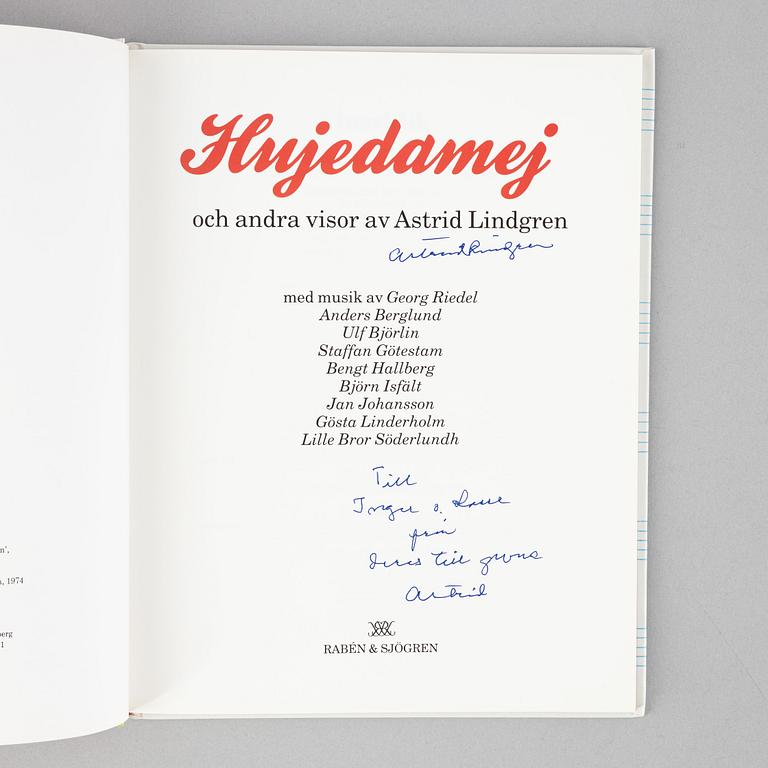 Hujedamej
och andra visor av Astrid Lindgren
Astrid Lindgren
med musik av Georg Riedel
Anders Berglund
Ulf Björlin
Staffan Götestam
Bengt Hallberg
Björn Isfält
Jan Johansson
Gösta Linderholm
Lille Bror Söderlundh
Till
Inger o. Lasse
från
deras tillgivna
Astrid
RABÉN & SJÖGREN
n',
, 1974
berg
1